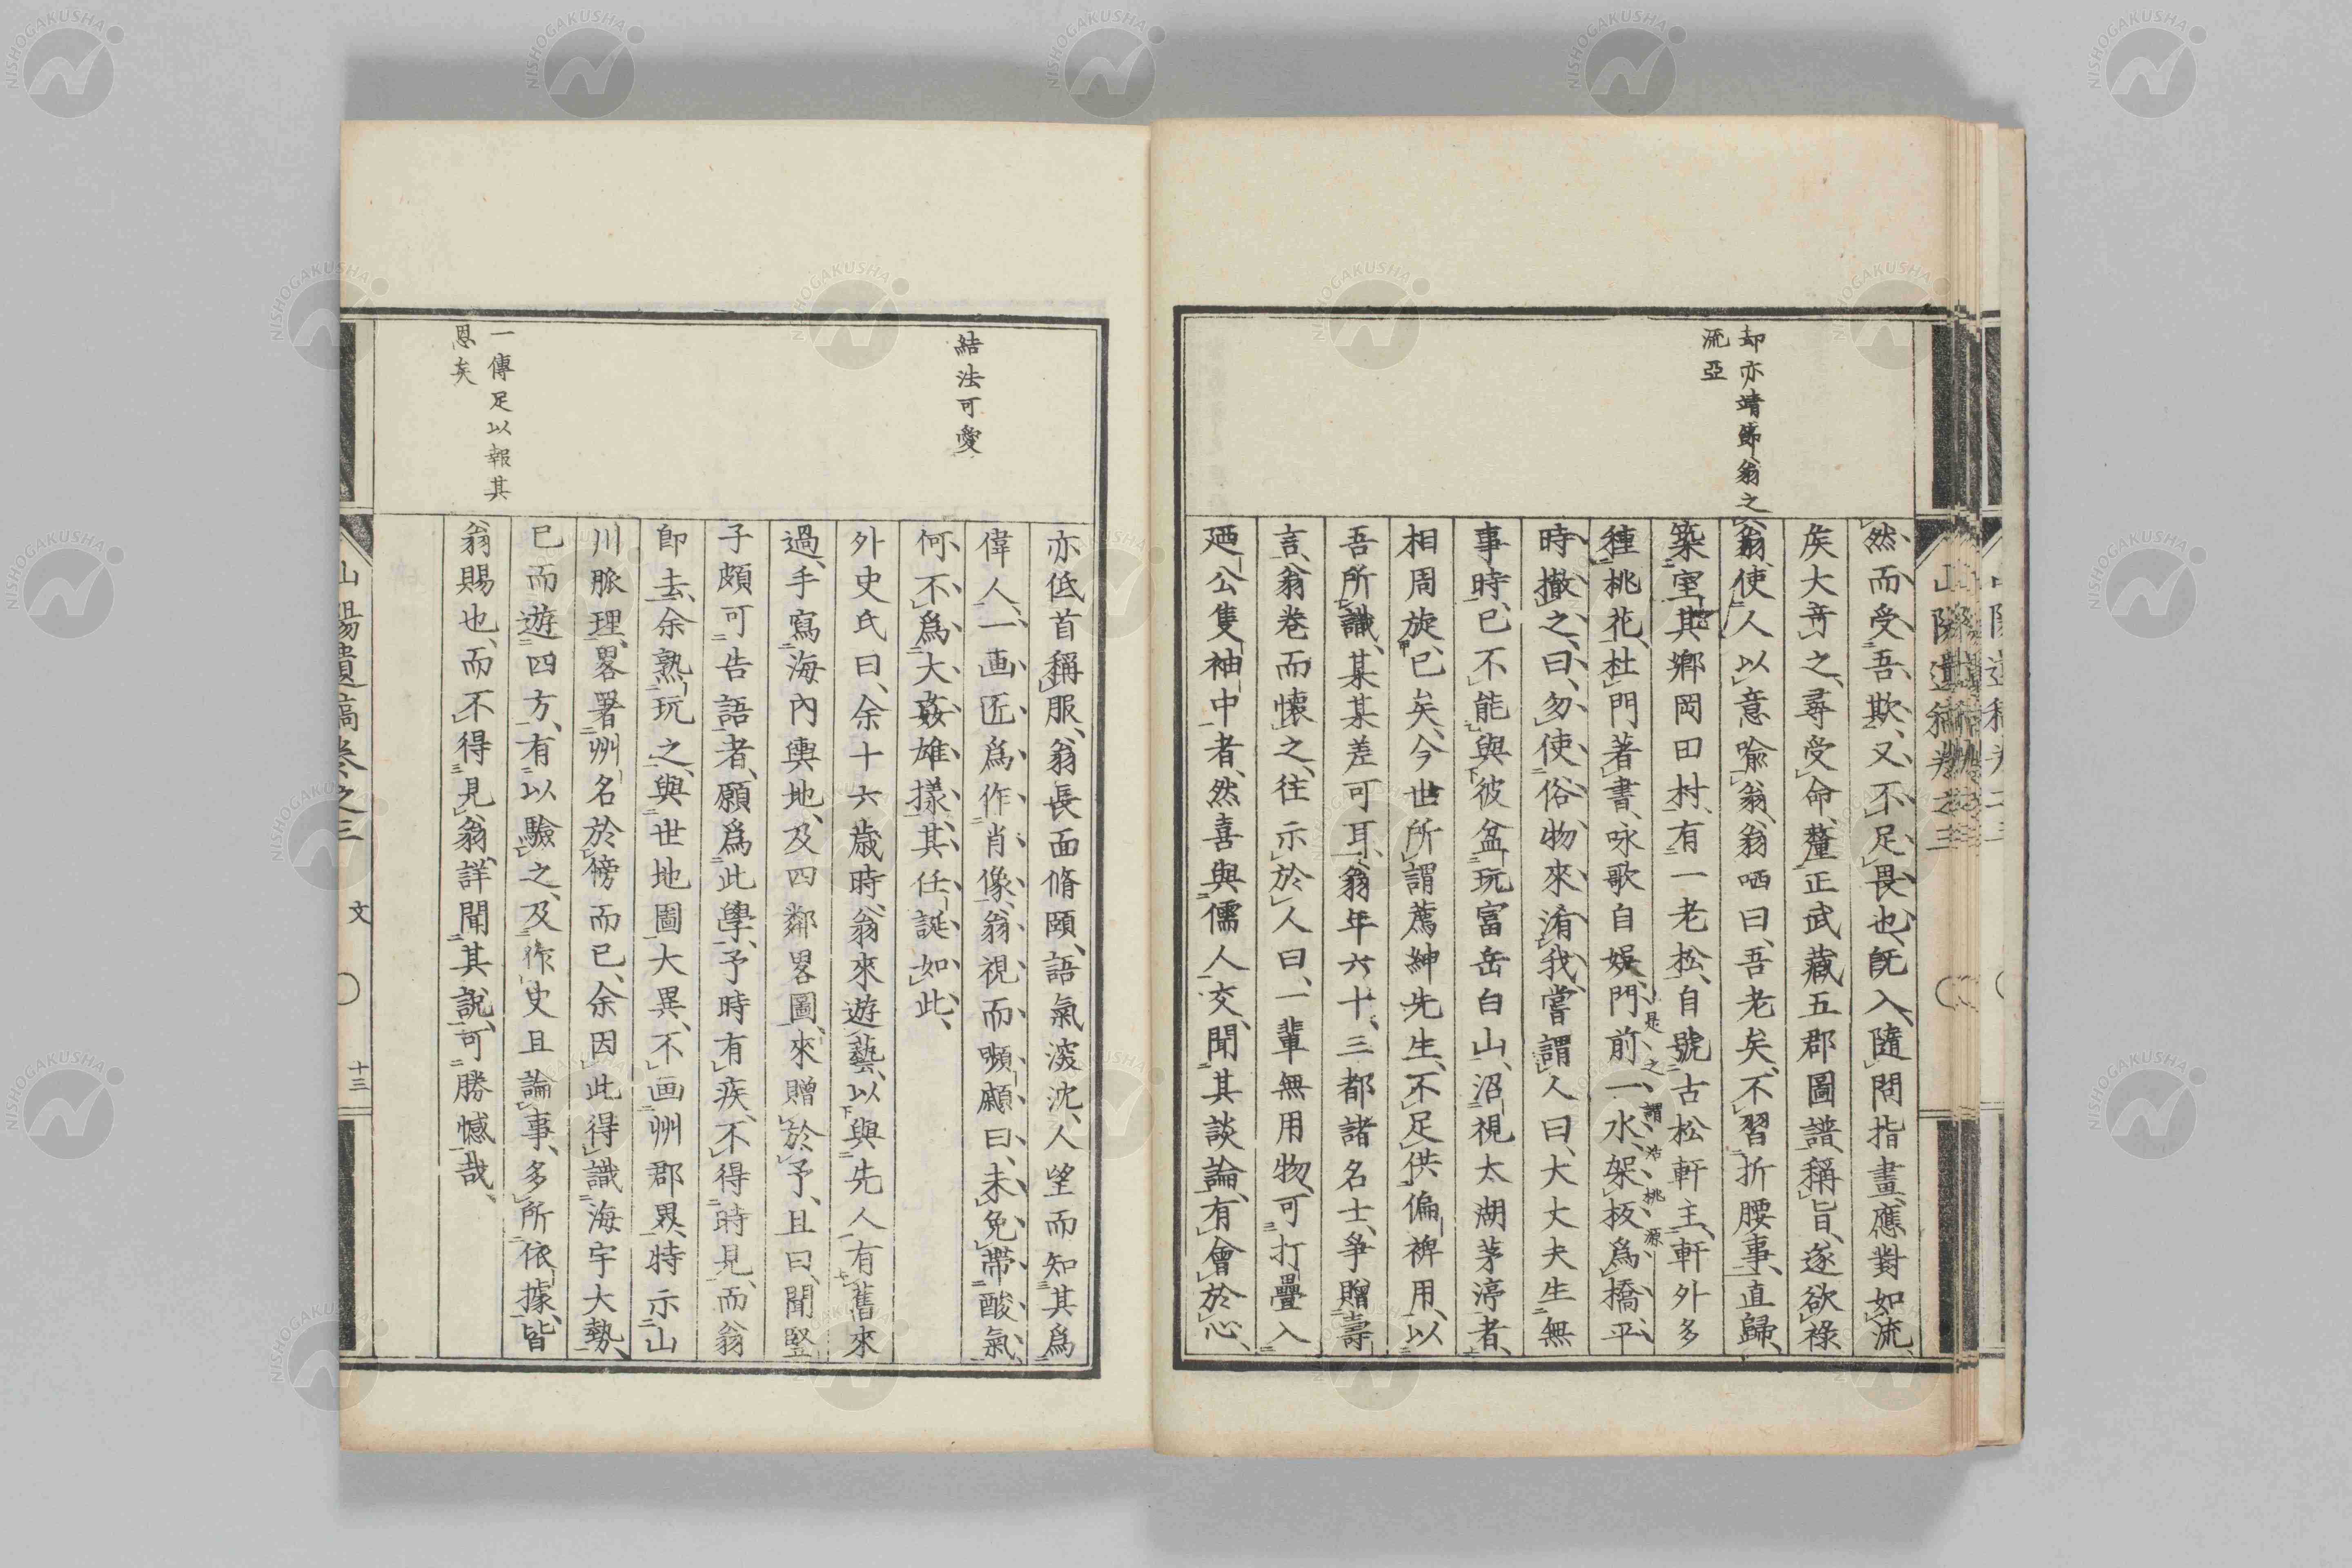 却亦靖節翁之
流亞
然而受吾欺、又不足畏也、既入、隨問指畫、應對如流、
矦大竒之、尋受命、釐正武藏五郡圖譜、稱旨、遂欲祿
翁、使人以意喩翁、翁哂曰、吾老矣、不習折腰事、直歸、
築室其鄉岡田村、有一老松、自號古松軒主、軒外多
種桃花、杜門著書、咏歌自娛、門前一水、架板爲橋、平
是之謂活桃源
時撤之、曰、勿使俗物來淆我、嘗謂人曰、大丈夫生無
事時、已不能與彼盆玩富岳白山、沼視太湖茅渟者、
相周旋、已矣、今世所謂薦紳先生、不足供偏裨用、以
吾所識、某某差可耳、翁年六十、三都諸名士、爭贈壽
言、翁卷而懷之、往示於人曰、一輩無用物、可打疊入
廼公隻袖中者、然喜與儒人交、聞其談論、有會於心、
結法可愛
一傳足以報其
恩矣
亦低首稱服、翁長面脩頤、語氣深沈、人望而知其爲
偉人、一画匠爲作肖像、翁視而嚬顣曰、未免帶酸氣、
何不爲大姦雄樣、其任誕如此、
外史氏曰、余十六歲時、翁來遊藝、以與先人有舊來
過、手寫海內輿地、及四鄰畧圖、來贈於予、且曰、聞豎
子頗可告語者、願爲此學、予時有疾、不得時見、而翁
卽去、余熟玩之、與世地圖大異、不画州郡界、特示山
川脈理、畧署州名於傍而已、余因此得識海宇大勢、
已而遊四方、有以驗之、及作史且論事、多所依據、皆
翁賜也、而不得見翁詳聞其說、可勝憾哉、
山陽遺稿卷之三　文　十三